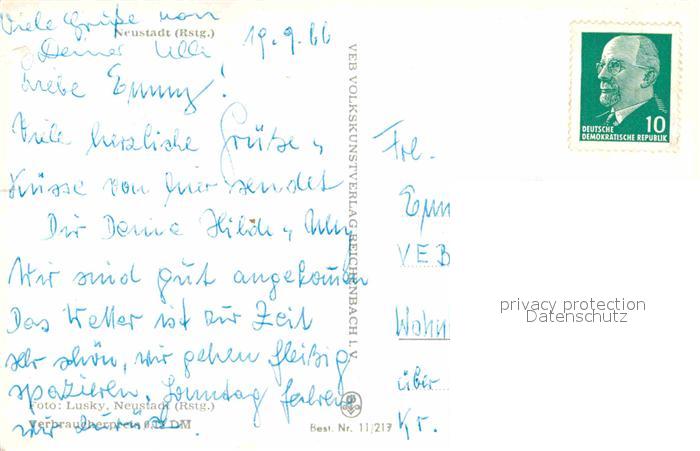 Viele Grüße von
Deiner Ulli
Neustadt (Rstg.)
19.9.66
Liebe Emmy!
Viele herzliche Grüße u.
Küsse von hier sendet
Dir Deine Hilde u.
Wir sind gut angekommen
Das Wetter ist zur Zeit
sehr schön, wir gehen fleißig
spazieren. Sonntag fahren
wir zurück.
Foto: Lusky, Neustadt (Rstg.)
Verbraucherpreis DM
Best. Nr. 11/217
VEB VOLKSKUNSTVERLAG REICHENBACH I. V.
DEUTSCHE
DEMOKRATISCHE REPUBLIK
10
Frl.
VEB
über
Kr.
privacy protection
Datenschutz